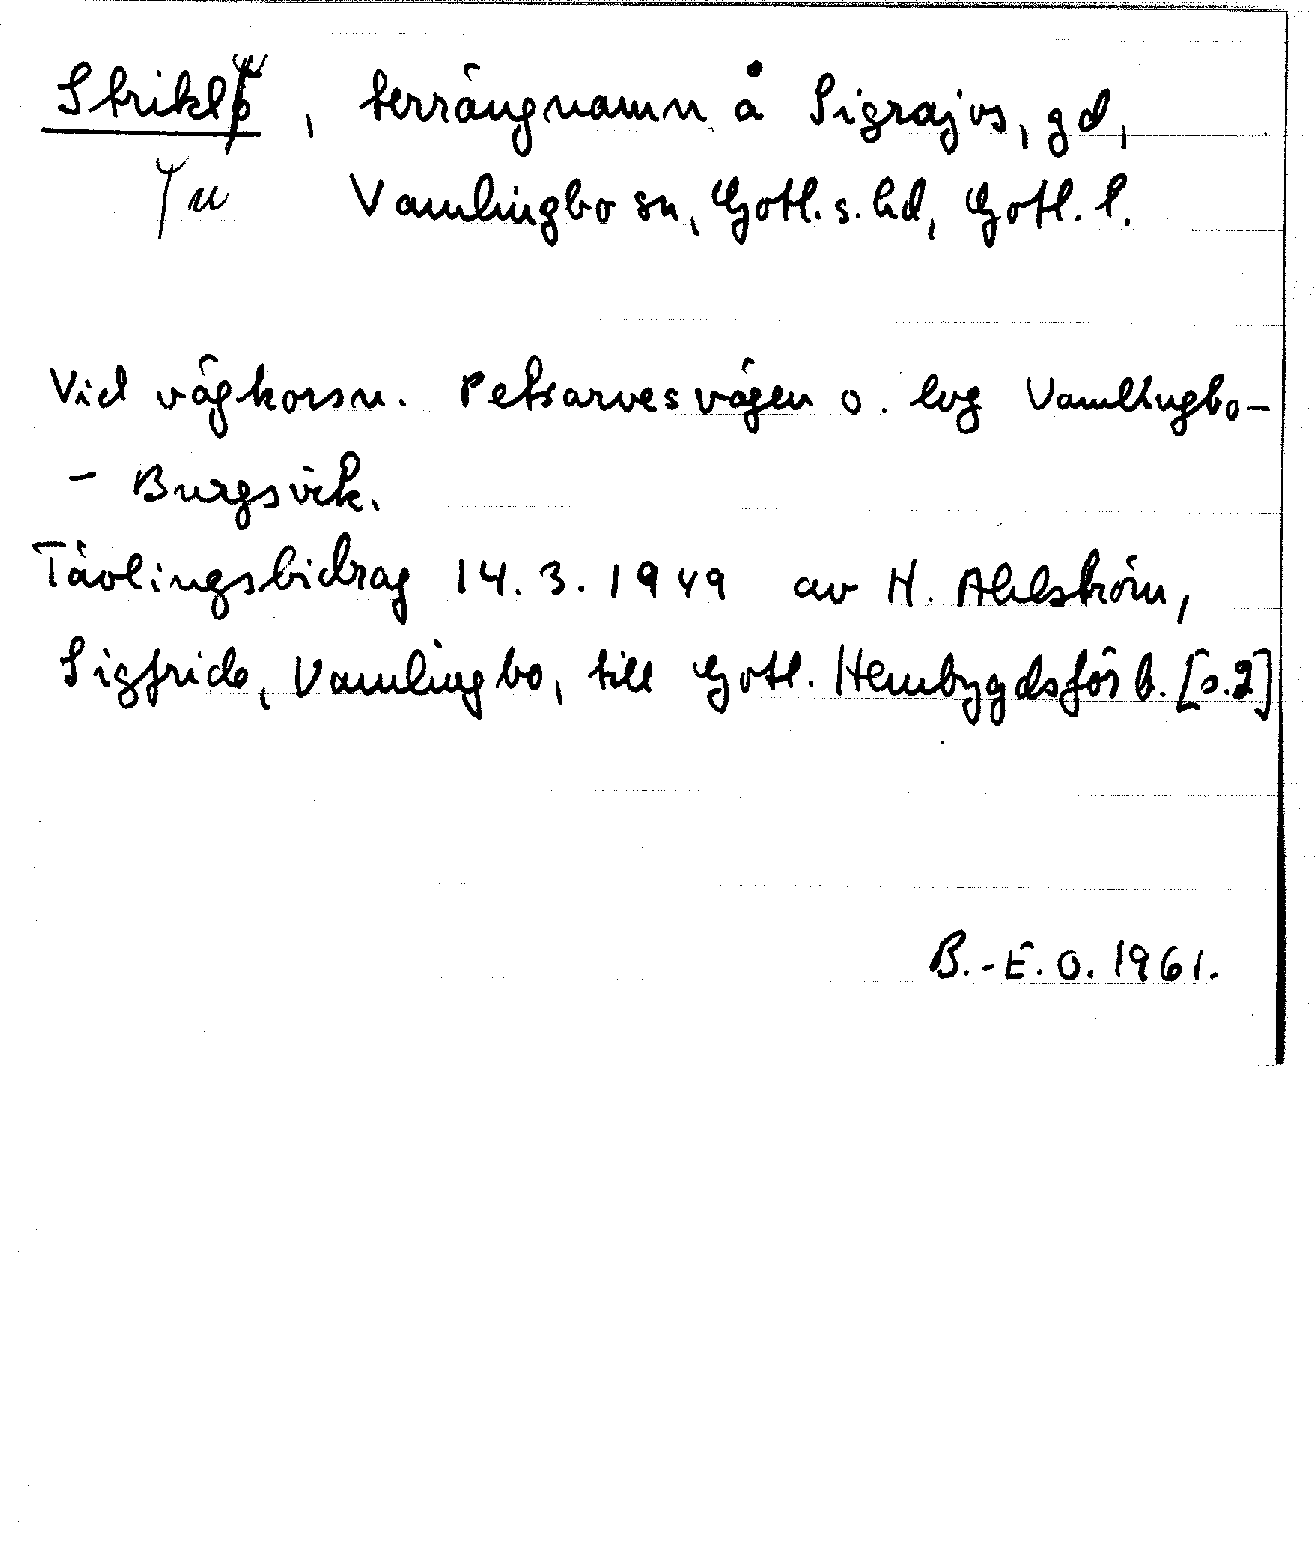 Strikl, terrängnamn å Sigrajvs, gd,
u Vamlingbo sn, Gotl. s. hd, Gotl. l.
Vid vägkorsn. Petsarvesvägen o. lvg Vamlingbo-
- Burgsvik.
Tävlingsbidrag 14.3.1949 av H. Ahlström,
Sigfride, Vamlingbo, till Gotl. Hembygdsförb. [s.2]
B.-E.O. 1961.